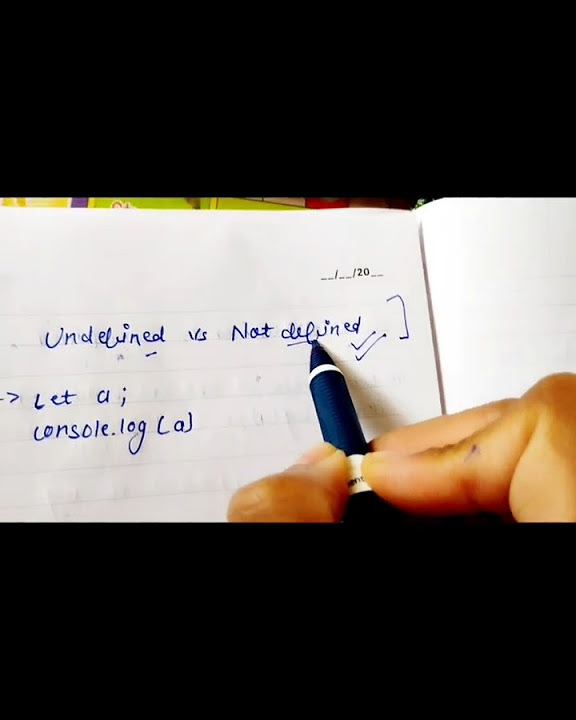 __/__/20__
Undefined vs Not defined
-> Let a;
console.log (a)